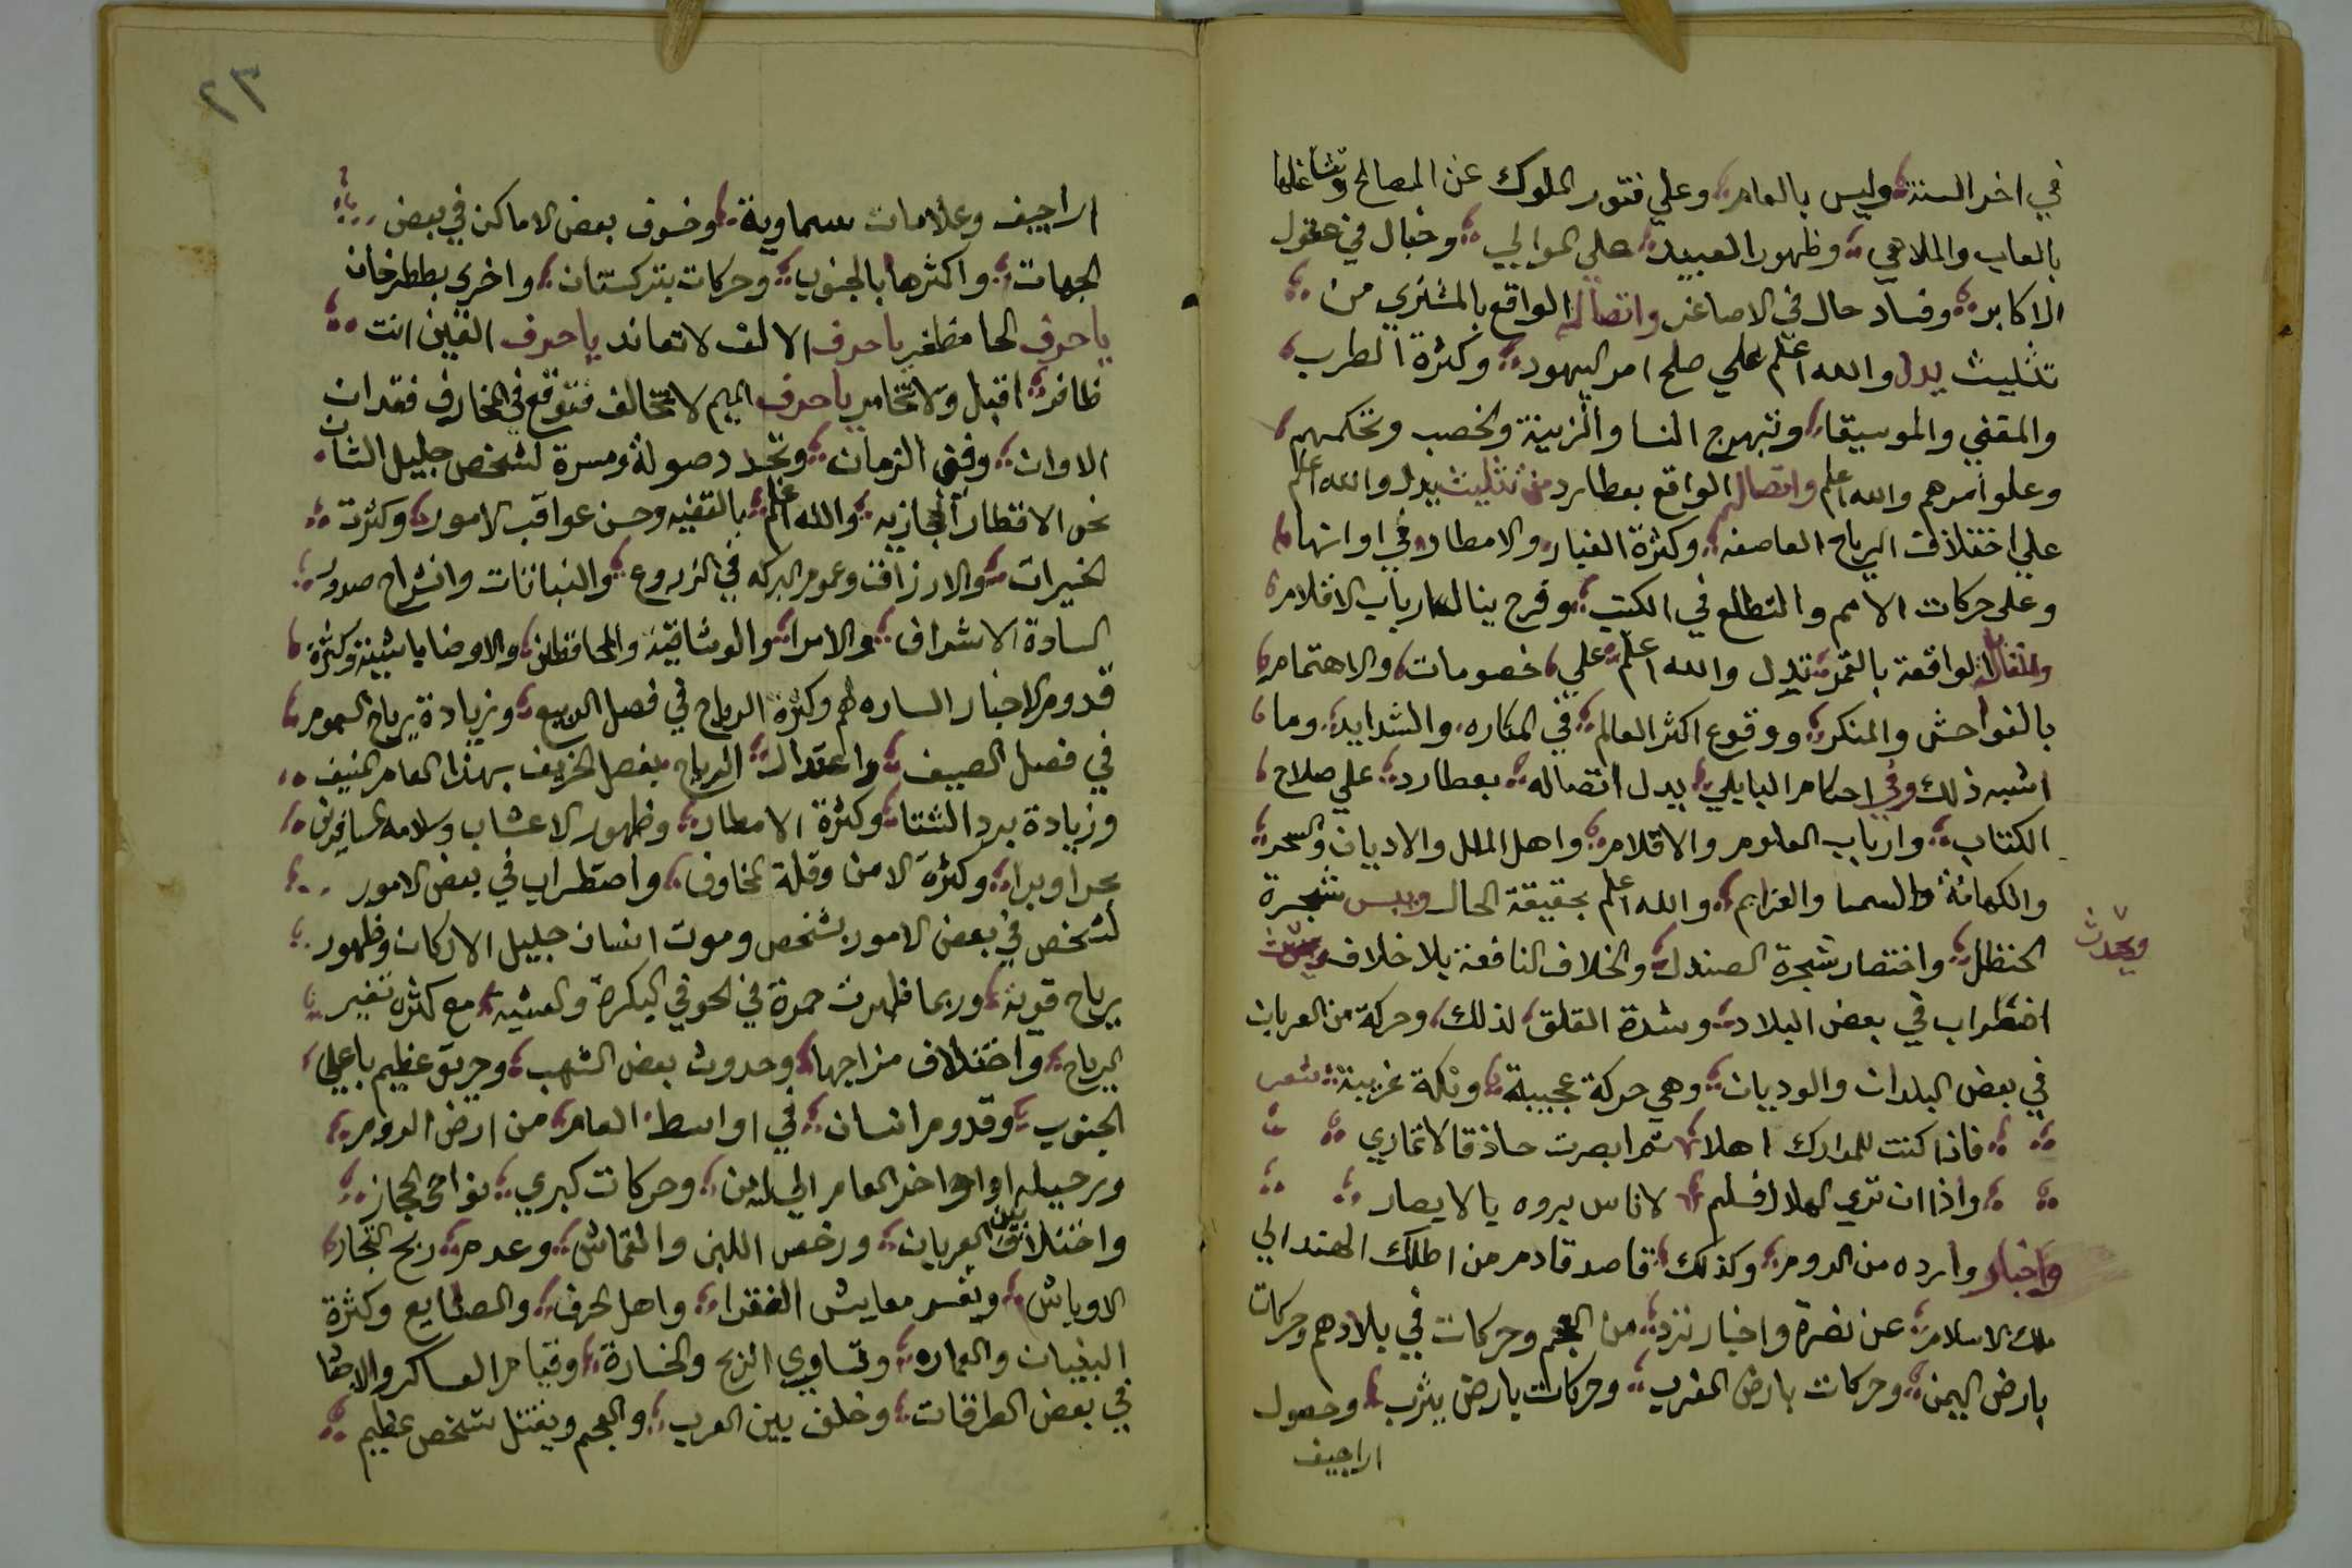 في اخر السنة وليس بالعام وعلي فتور الملوك عن المصالح وتشاغلها
بالعاب والملاهي وظهور العبيد علي الموالي وخبال في عقول
الاكابر وفساد حال في الاصاغر واتصاله الواقع بالمشتري من
تثليث يدل والله اعلم علي صلح امر اليهود وكثرة الطرب
والمغني والموسيقا وتبهرج النسا والزينة والخصب وتحكمهم
وعلو امرهم والله اعلم واتصاله الواقع بعطارد من تثليث يدل والله اعلم
علي اختلاف الرياح العاصفه وكثرة الغبار والامطار في اوانها
وعلى حركات الامم والتطلع في الكتب وفرح ينال ارباب الاقلام
واتصاله الواقعة بالقمر تدل والله اعلم علي خصومات والاهتمام
بالفواحش والمنكر ووقوع اكثر العالم في المكاره والشدايد وما
اشبه ذلك وفي احكام البابلي يدل اتصاله بعطارد علي صلاح
الكتاب وارباب العلوم والاقلام واهل الملل والاديان والسحر
والكهانة والسما والعزايم والله اعلم بحقيقة الحال ويبس شجرة
الحنظل واختصار شجرة الصندل والخلاف النافعة بلا خلاف
ويحدث
اضطراب في بعض البلاد وشدة القلق لذلك وحركة من العربان
في بعض البلدان والوديان وهي حركة عجيبة ونكة غريبة شعر
فاذا كنت للمدارك اهلا ثم ابصرت حاذقا لا تماري
واذا ان تري الهلال فسلم لاناس يروه يالابصار
واخبار وارده من الروم وكذلك قاصد قادم من اطلك الهند الي
ملك الاسلام عن نضرة واخبار ترد من العجم وحركات في بلادهم وحركات
بارض اليمن وحركات بارض المغرب وحركات بارض يثرب وحصول
اراجيف
٢٣
اراجيف وعلامات سماوية وخسوف بعض الاماكن في بعض
الجهات واكثرها بالجنوب وحركات بتركستان واخري بططرخان
ياحرف الحا مظفر ياحرف الالف لا تعاند ياحرف الغين انت
ظافر اقبل ولا تخامر ياحرف الميم لا تتخالف فتوقع في المخارف فقدان
الاوان وفتى الزمان وتجدد صولة ومسرة لشخص جليل الشان
نحو الاقطار الحجازيه والله اعلم بالتقنيه وحسن عواقب الامور وكثرت
الخيرات والارزاق وعموم البركه في الزروع والنباتات وانشراح صدور
السادة الاشراف والامرا والوشاقية والمحافظين والاوضاباشية وكثرة
قدوم الاخبار الساره لهم وكثرة الرياح في فصل الربيع وزيادة رياح السموم
في فصل الصيف واعتدال الرياح بفصل الخريف بهذا العام المنيف
وزيادة برد الشتا وكثرة الامطار وظهور الاعشاب وسلامه المسافرين
بحرا وبرا وكثرة الامن وقلة المخاوف واضطراب في بعض الامور
لشخص في بعض الامور بشخص وموت انسان جليل الاركان وظهور
رياح قوية وربما ظهرت حمرة في الجو في البكرة والعشيه مع كثره تغير
الرياح واختلاف مزاجها وحدوث بعض الشهب وحريق عظيم باعلي
الجنوب وقدوم انسان في اواسط العام من ارض الروم
ورحيله اواخر العام وحركات كبري بنواحي الحجاز
واختلاف بين العربان ورخص اللبن والقماش وعدم ربح التجار
الاوباش وتعسر معايش الفقرا واهل الحرف والصنايع وكثرة
البنيان والعماره وتساوي الربح والخسارة وقيام العساكر والاجقا
في بعض الطرقات وخلف بين العرب والعجم ويقتل شخص عظيم